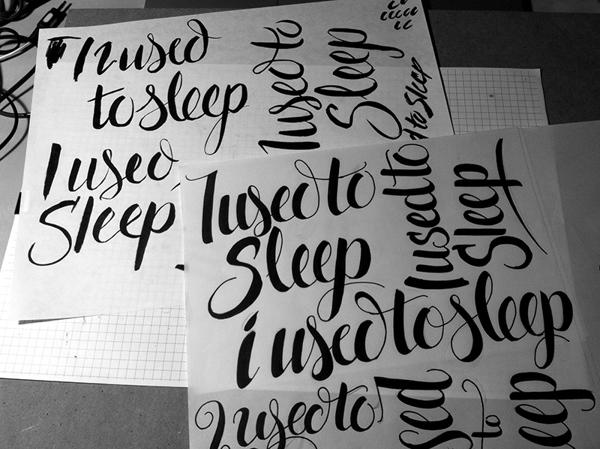 I used
to sleep
I used
Sleep
I used to
Sleep
to sleep
I used to
Sleep
I used to
Sleep
i used to sleep
I used to
used
to
eep